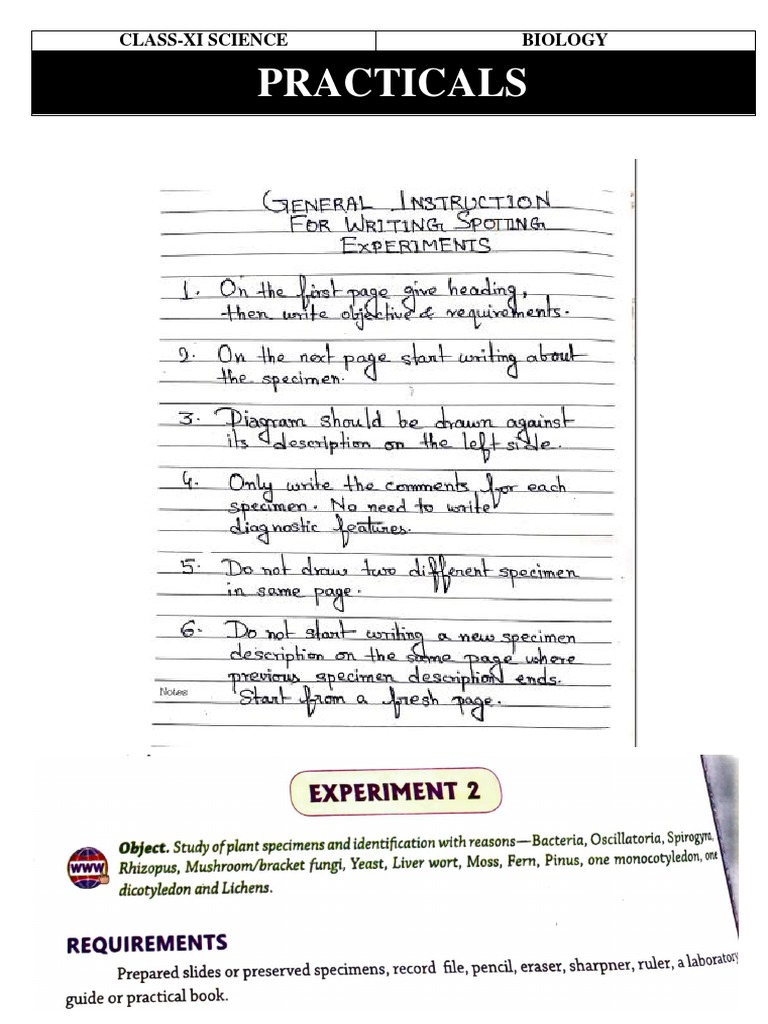 CLASS-XI SCIENCE
BIOLOGY
PRACTICALS
GENERAL INSTRUCTION
FOR WRITING SPOTTING
EXPERIMENTS
1. On the first page give heading,
then write objective & requirements.
2. On the next page start writing about
the specimen.
3. Diagram should be drawn against
its description on the left side.
4. Only write the comments for each
specimen. No need to write
diagnostic features.
5. Do not draw two different specimen
in same page.
6. Do not start writing a new specimen
description on the same page where
previous specimen description ends.
Notes
Start from a fresh page.
EXPERIMENT 2
Object. Study of plant specimens and identification with reasons—Bacteria, Oscillatoria, Spirogyra,
WWW
Rhizopus, Mushroom/bracket fungi, Yeast, Liver wort, Moss, Fern, Pinus, one monocotyledon, one
dicotyledon and Lichens.
REQUIREMENTS
Prepared slides or preserved specimens, record file, pencil, eraser, sharpner, ruler, a laboratory
guide or practical book.